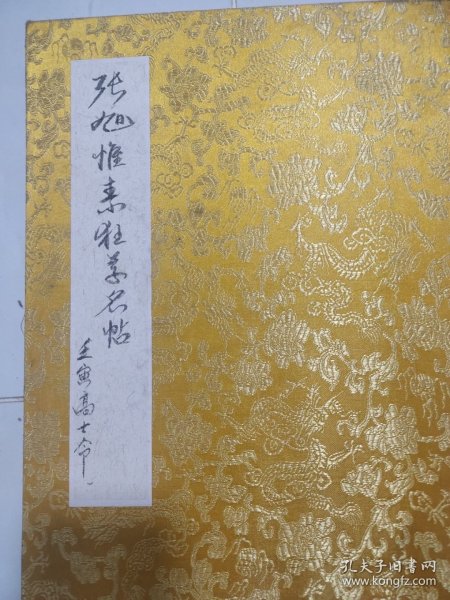 张旭怀素狂草名帖
壬寅高士命
孔夫子旧书网
www.kongfz.com